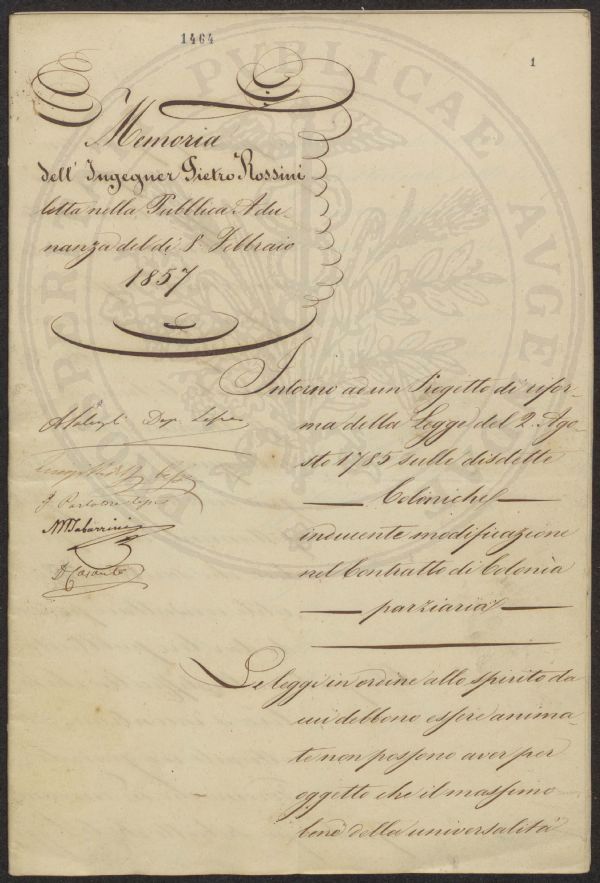 1464
1
Memoria
dell' Ingegner Pietro Rossini
letta nella Pubblica Adu-
nanza del dì 8 Febbraio
1857
Intorno ad un Progetto di rifor-
ma della Legge del 2. Ago-
sto 1785 sulle disdette
Coloniche
inducente modificazione
nel Contratto di Colonìa
parziaria
Le leggi in ordine allo spirito da
cui debbono essere anima-
te non possono aver per
oggetto che il massimo
bene della universalità
Dep.
M Tabarrini
PUBLICAE